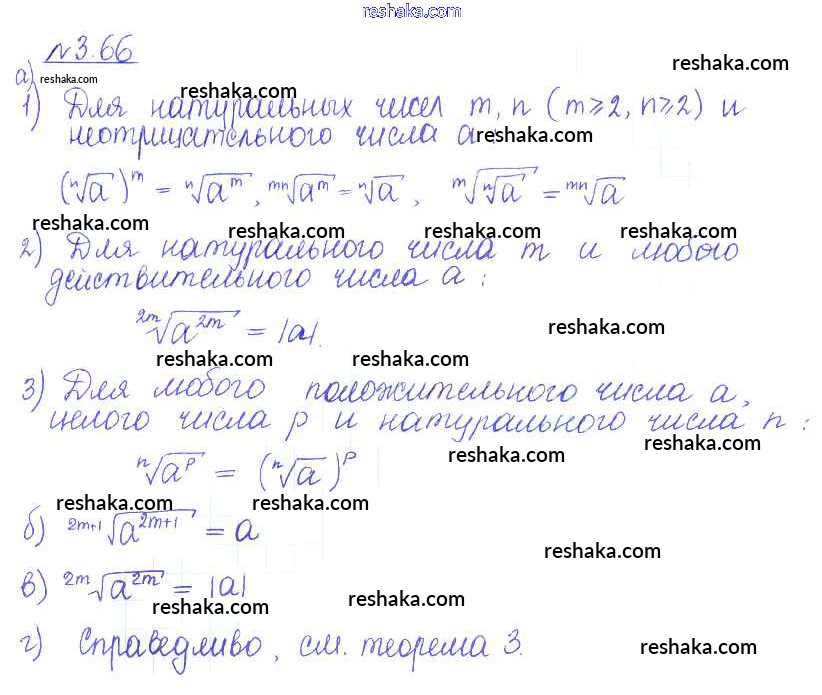 reshaka.com
№3.66
reshaka.com
а) reshaka.com
reshaka.com
1) Для натуральных чисел m, n (m⩾2, n⩾2) и
неотрицательного числа a: reshaka.com
(ⁿ√a)^m = ⁿ√(a^m), ᵐⁿ√(a^m) = ⁿ√a, ᵐ√(ⁿ√a) = ᵐⁿ√a
reshaka.com reshaka.com reshaka.com reshaka.com
2) Для натурального числа m и любого
действительного числа a:
²ᵐ√(a^2m) = |a|. reshaka.com
reshaka.com reshaka.com
3) Для любого положительного числа a,
целого числа p и натурального числа n:
reshaka.com reshaka.com
ⁿ√(a^p) = (ⁿ√a)^p
reshaka.com reshaka.com
б) ²ᵐ⁺¹√(a^2m+1) = a
reshaka.com
в) ²ᵐ√(a^2m) = |a|
reshaka.com reshaka.com
г) Справедливо, см. теорема 3.
reshaka.com